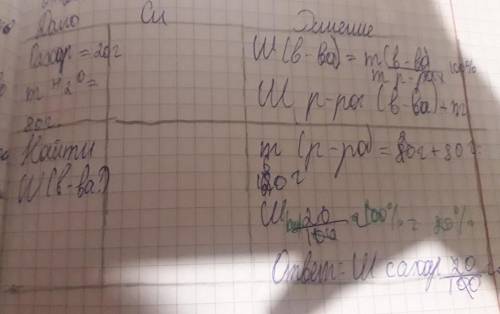 Дано Си Решение
Сахар = 20г
m H2O =
80г
Найти
W(в-ва?)
W(в-ва) = m(в-ва) / m р-ра x 100%
W р-ра (в-ва) + m
m (р-ра) = 20г + 80г =
100г
W 20/100 100% = 20%
Ответ: W сахар. 20/100